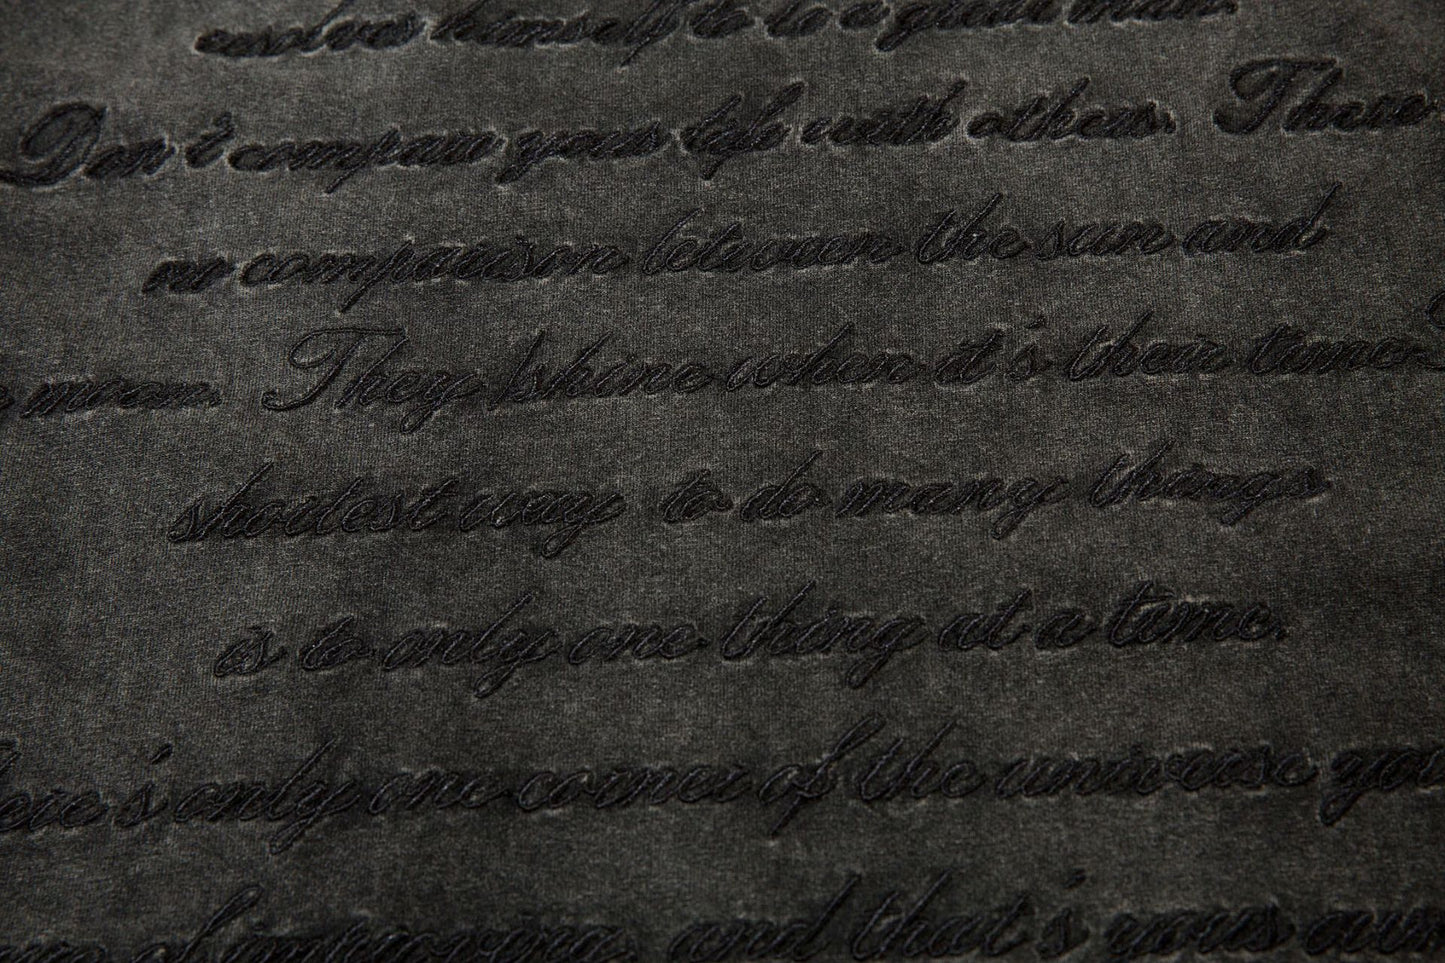 evolves himself to to a great man.
Don't compare your life with others. There
no comparison between the sun and
moon. They shine when it's their time
shortest way to do many things
is to only one thing at a time.
only one corner of the universe you
of improving, and that's your own